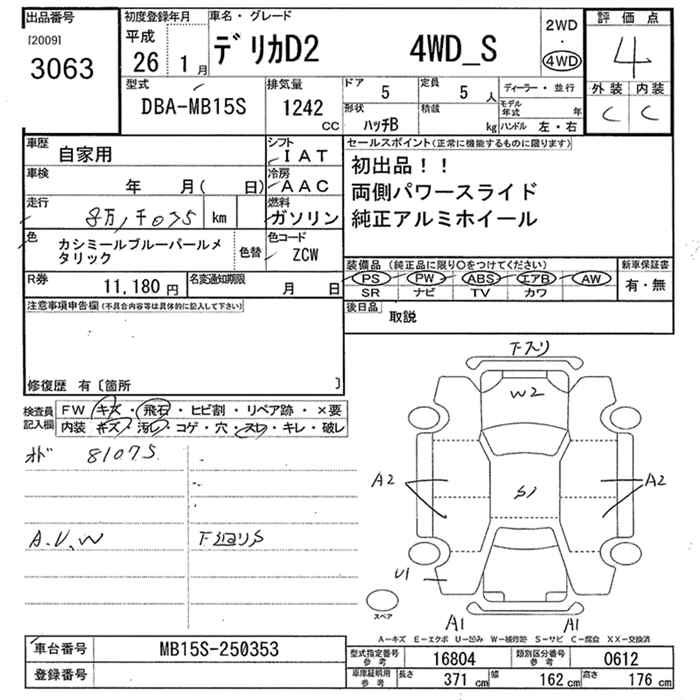 出品番号
[2009]
3063
初度登録年月
平成
26 1月
車名・グレード
デリカD2 4WD_S
2WD
4WD
評価点
4
外装 内装
C C
型式
DBA-MB15S
排気量
1242 CC
ドア
5
定員
5人
形状
ハッチB
積載
kg
ディーラー・並行
モデル年式 年
ハンドル 左・右
車歴
自家用
シフト
IAT
車検
年 月( 日)
冷房
AAC
走行
km
燃料
ガソリン
色
カシミールブルーパールメタリック
色替
色コード
ZCW
R券
11,180円
名変通知期限
月 日
セールスポイント(正常に機能するものに限ります)
初出品!!
両側パワースライド
純正アルミホイール
装備品(純正品に限り○をつけてください)
PS PW ABS エアB AW
SR ナビ TV カワ
新車保証書
有・無
後日品
取説
注意事項申告欄(不具合内容等は具体的に記入して下さい)
修復歴 有〔箇所 〕
検査員記入欄
FW キズ・飛石・ヒビ割・リペア跡・×要
内装 キズ・汚レ・コゲ・穴・スレ・キレ・破レ
オド 81075
A.U.W
下廻りS
下スリ
W2
A2
S1
A2
U1
スペア
A1
A1
A―キズ E―エクボ U―凹み W―補修跡 S―サビ C―腐食 XX―交換済
車台番号
MB15S-250353
登録番号
型式指定番号 参考
16804
類別区分番号 参考
0612
車庫証明用 参考
長さ 371 cm
幅 162 cm
高さ 176 cm